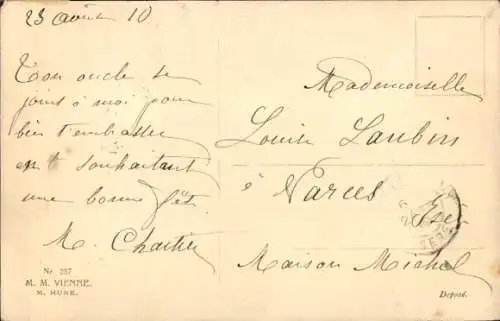 23 août 10
Ton oncle se
joint à moi pour
bien t'embrasser
en te souhaitant
une bonne fête.
M. Chartier
Nr. 257
M. M. VIENNE.
M. MUNK.
Mademoiselle
Louise Laubin
à Varces
Isère
Maison Michel
Déposé.